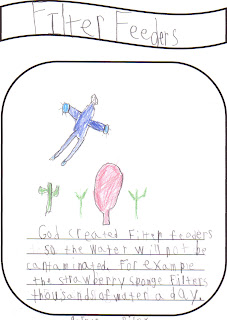 Filter Feeders
God created Filter feeders
so the water will not be
contaminated. For example
the strawberry sponge filters
thousands of water a day.